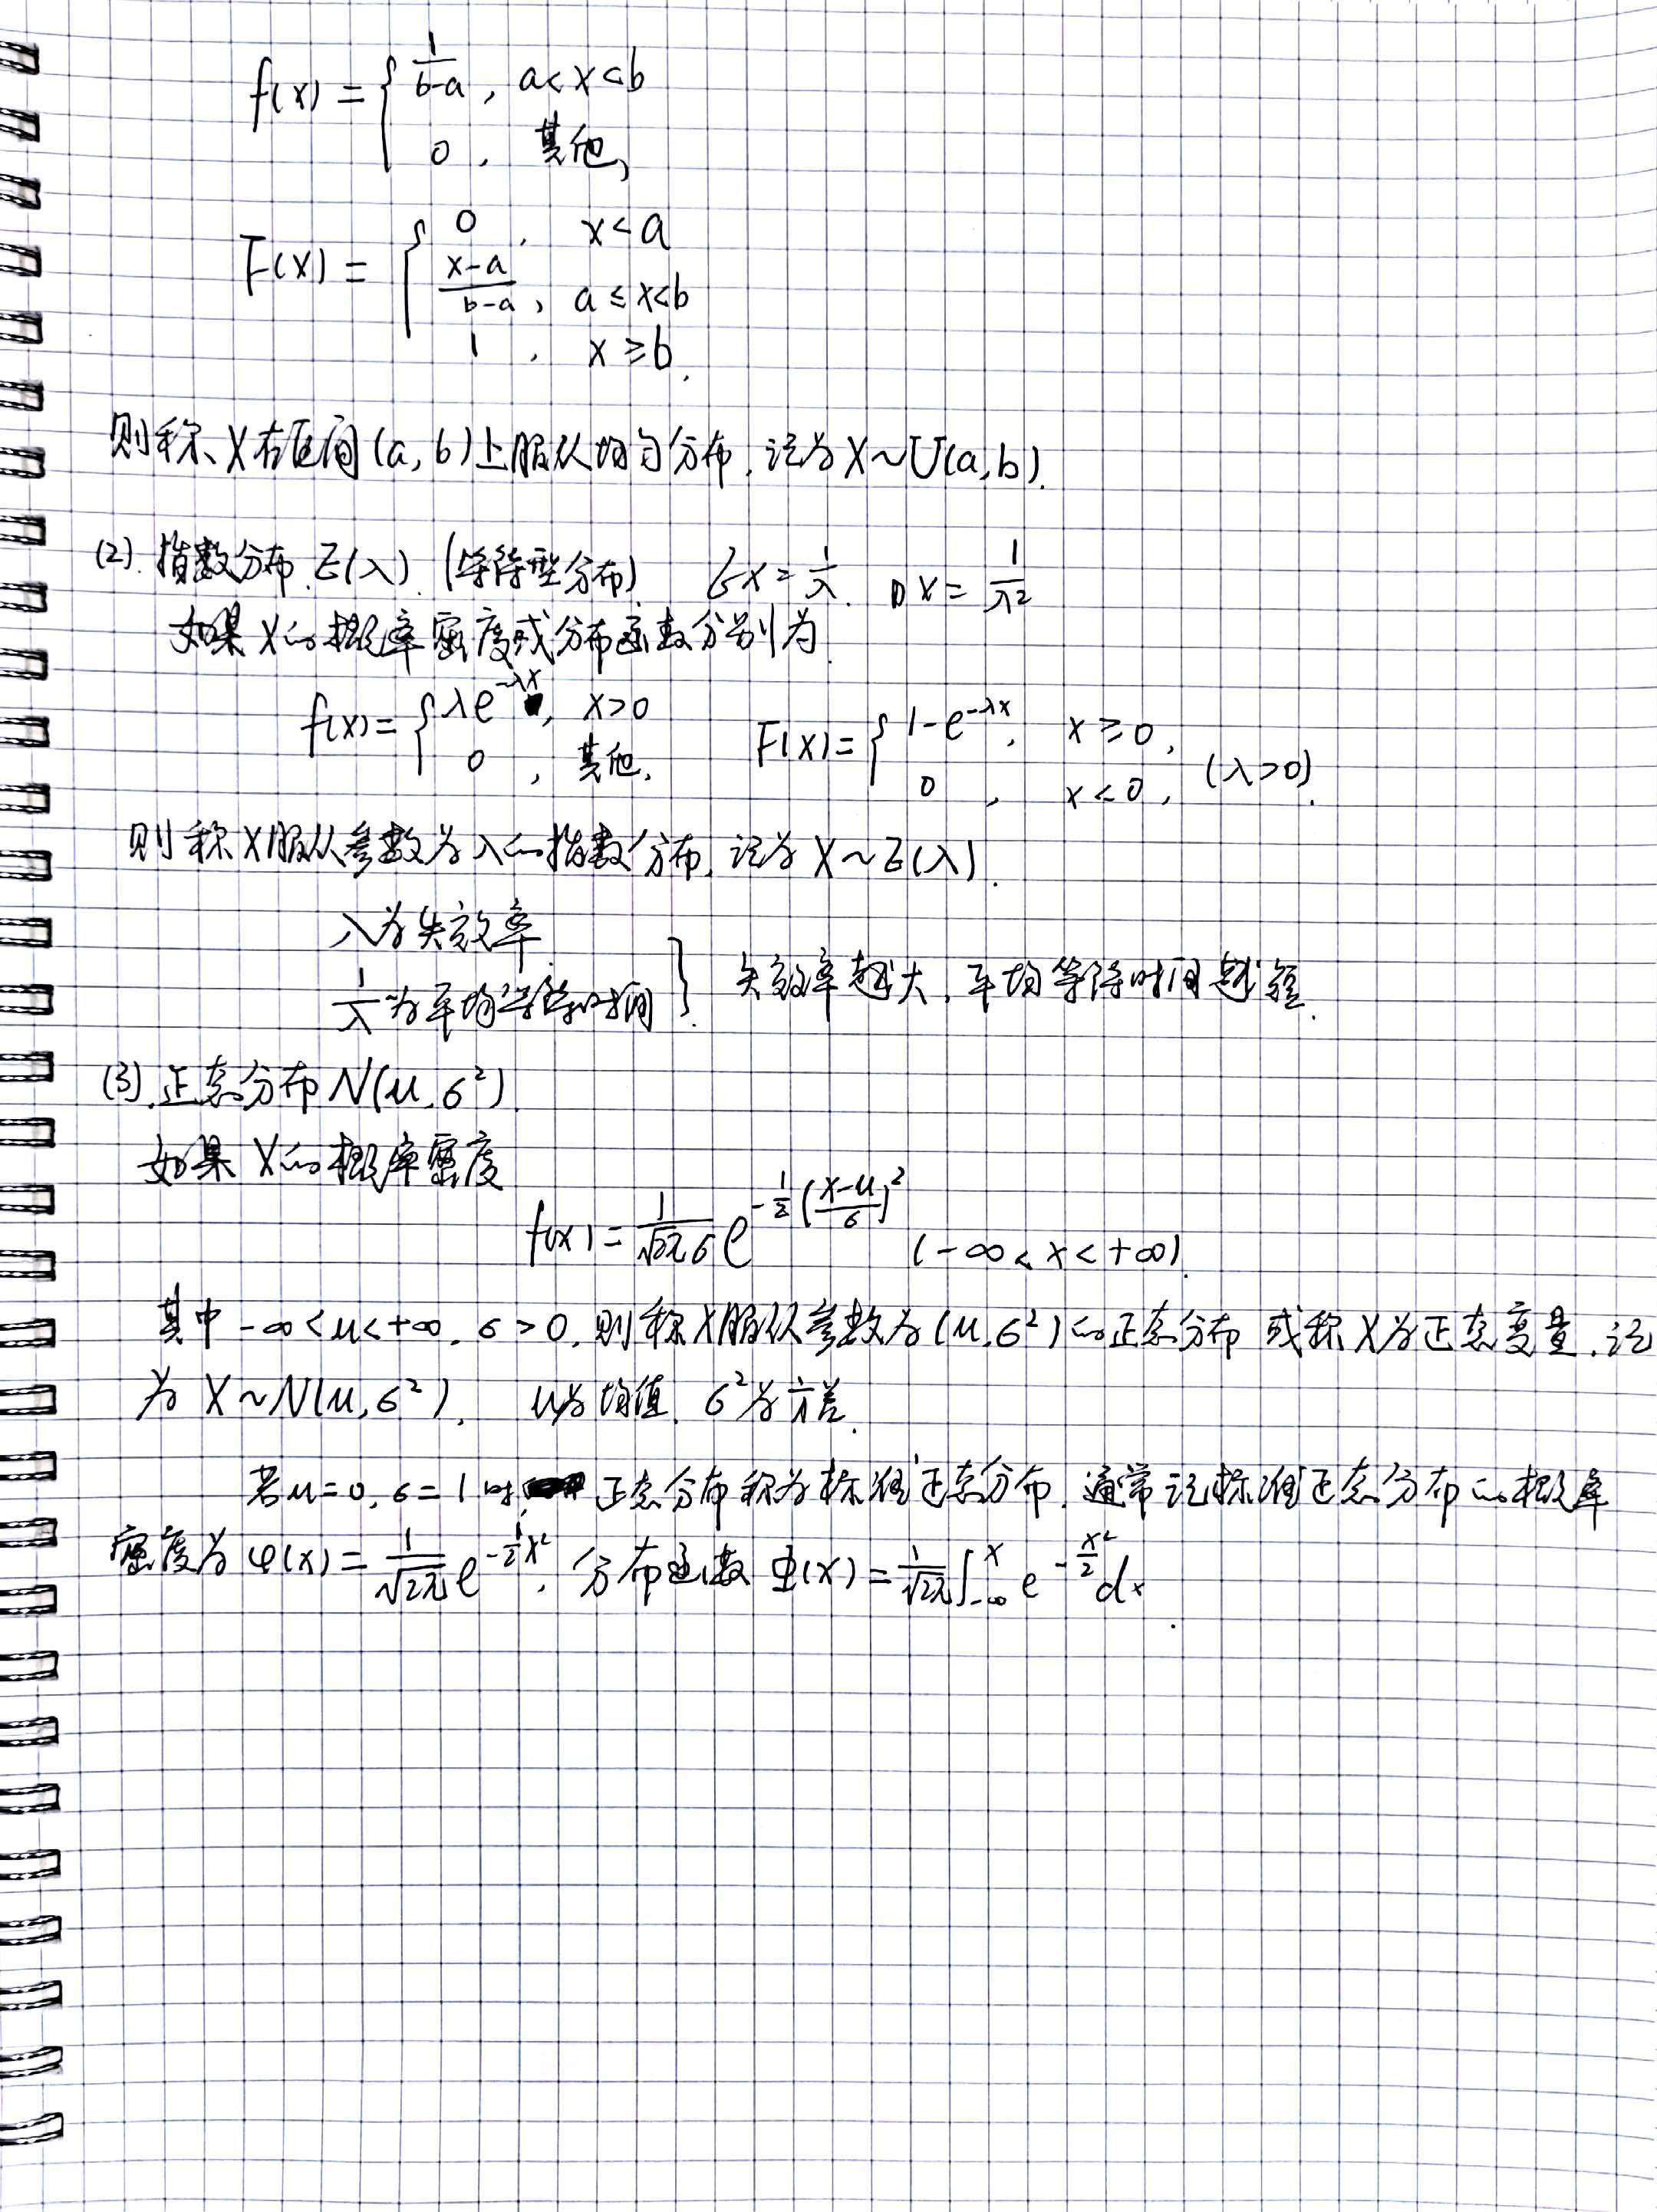 f(x) = { 1/(b-a), a<x<b
0, 其他,
F(x) = { 0, x<a
(x-a)/(b-a), a≤x<b
1, x≥b.
则称X在区间(a,b)上服从均匀分布,记为X~U(a,b).
(2).指数分布E(λ).(等待型分布) EX=1/λ. DX=1/λ²
如果X的概率密度或分布函数分别为.
f(x)={ λe^{-λx}, x>0 F(x)={ 1-e^{-λx}, x≥0,
0, 其他. 0, x<0, (λ>0).
则称X服从参数为λ的指数分布,记为X~E(λ).
λ为失效率.
1/λ为平均等待时间. } 失效率越大,平均等待时间越短.
(3).正态分布N(μ,σ²).
如果X的概率密度
f(x)=1/(√2πσ) e^{-1/2((x-μ)/σ)²} (-∞<x<+∞).
其中-∞<μ<+∞,σ>0,则称X服从参数为(μ,σ²)的正态分布或称X为正态变量,记
为X~N(μ,σ²). μ为均值,σ²为方差.
若μ=0,σ=1时,正态分布称为标准正态分布,通常记标准正态分布的概率
密度为φ(x)=1/√2π e^{-1/2x²},分布函数Φ(x)=1/√2π∫_{-∞}^{x} e^{-x²/2}dx.